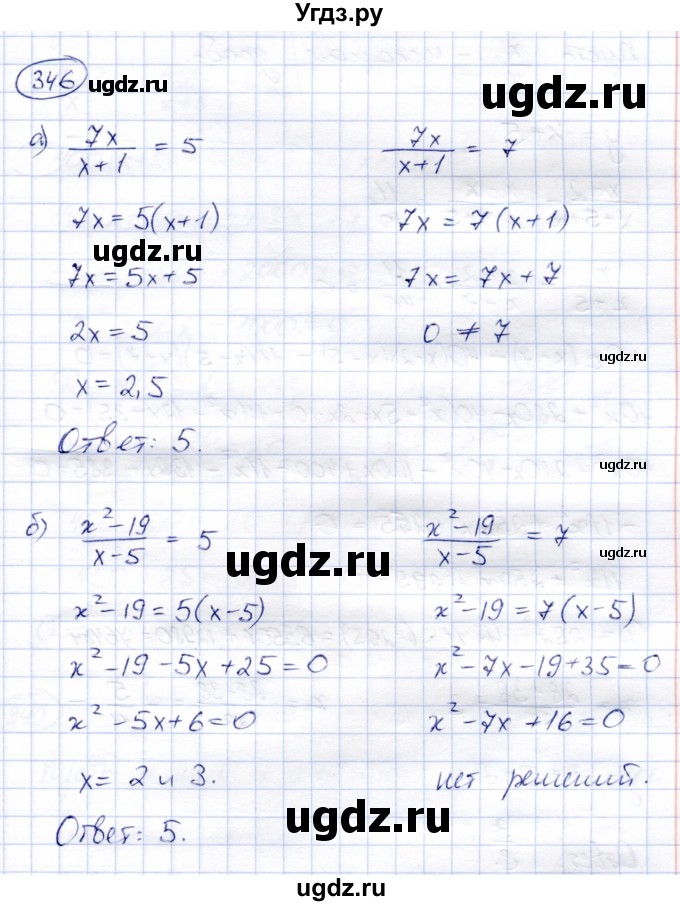 Угдз.ру
346 ugdz.ru
ugdz.ru
а) 7x/(x+1) = 5
7x = 5(x+1)
ugdz.ru
7x = 5x + 5
2x = 5
x = 2,5
Ответ: 5.
7x/(x+1) = 7
7x = 7(x+1)
7x = 7x + 7
0 ≠ 7
ugdz.ru
ugdz.ru
б) (x² – 19)/(x – 5) = 5
x² – 19 = 5(x – 5)
x² – 19 – 5x + 25 = 0
x² – 5x + 6 = 0
x = 2 и 3.
Ответ: 5.
ugdz.ru
(x² – 19)/(x – 5) = 7
x² – 19 = 7(x – 5)
x² – 7x – 19 + 35 = 0
x² – 7x + 16 = 0
нет решений.
ugdz.ru
ugdz.ru
ugdz.ru
ugdz.ru
ugdz.ru